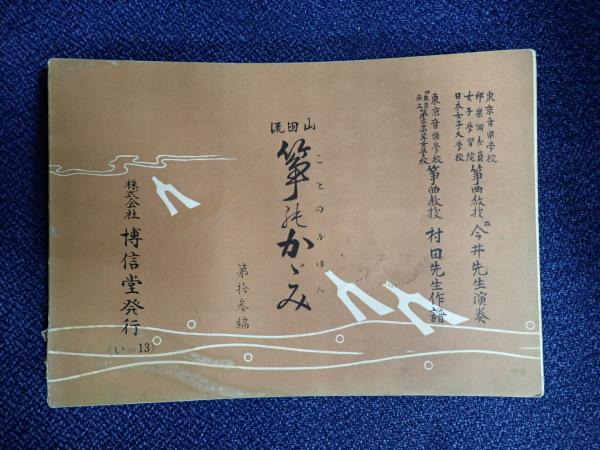 東京音楽学校
邦楽調査員
女子学習院
日本女子大学校
箏曲教授
故
今井先生演奏
東京音楽学校
東京府立第三高等女学校
箏曲教授
村田先生作譜
山田流
箏のかゞみ
第拾参編
株式会社
博信堂発行
(いの13)